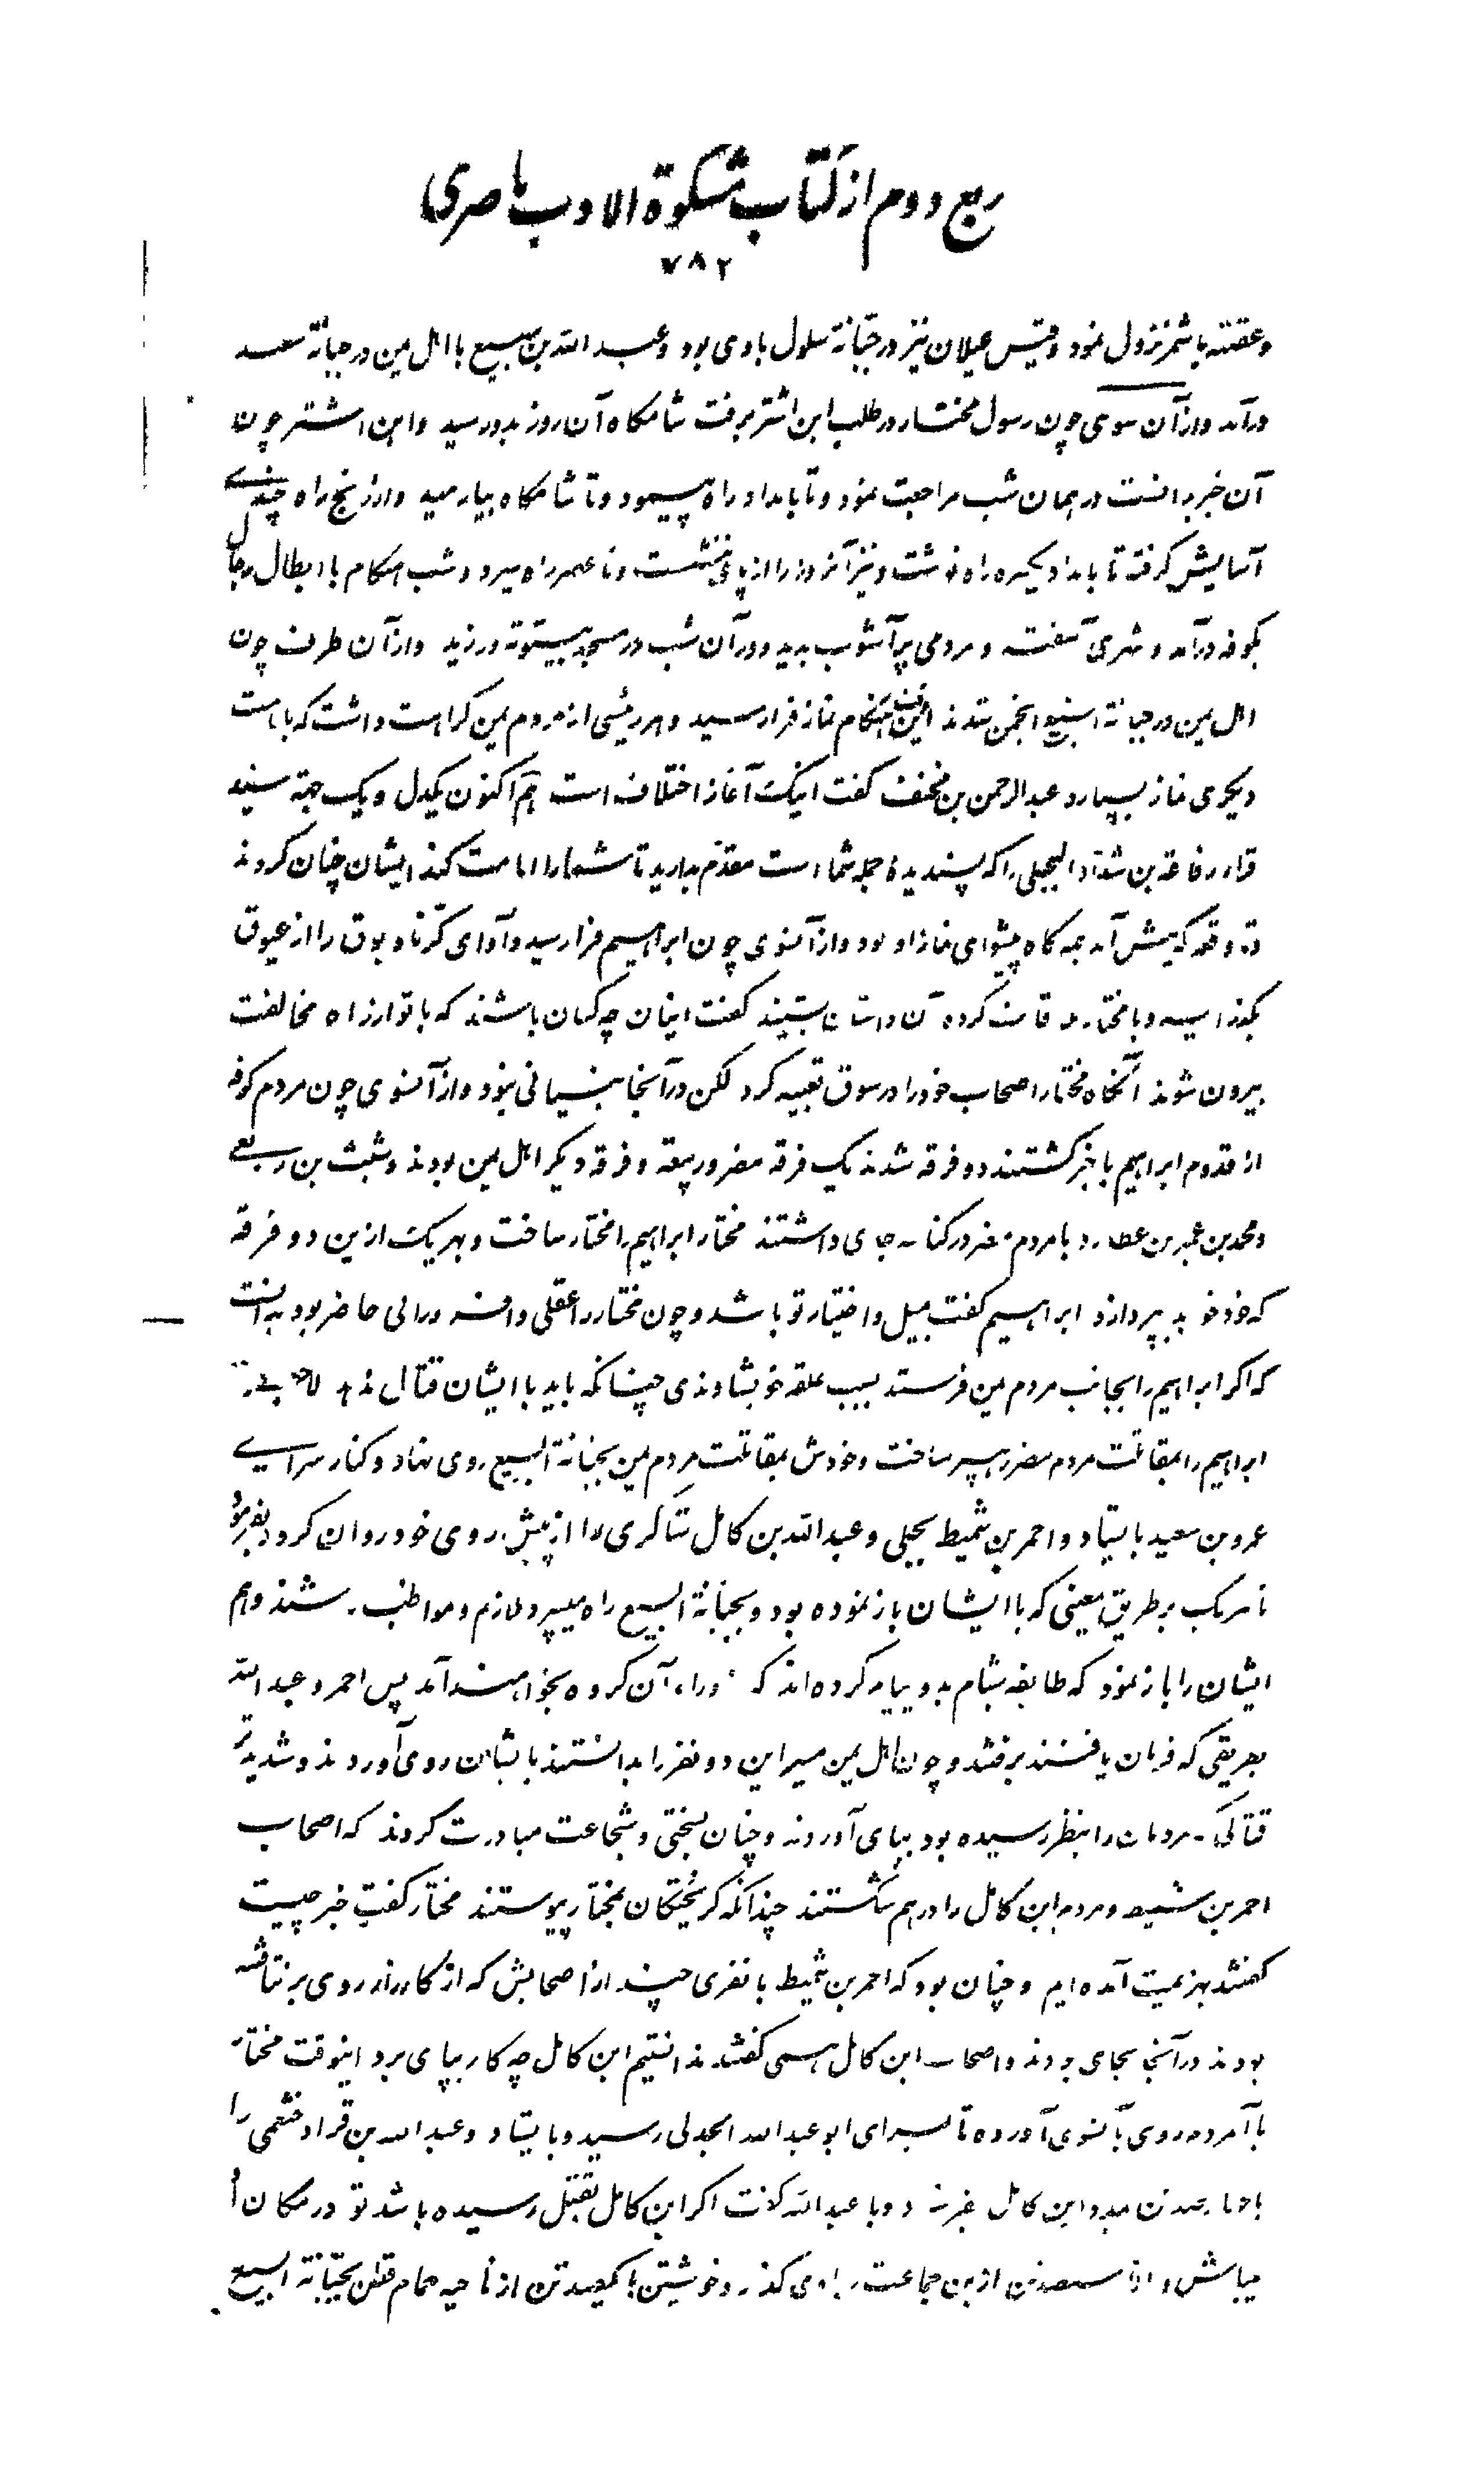 ربع دوم از کتاب مشکوة الادب ناصری
۷۸۲
و عقبه با شمر نزول نمود و قیس عیلان نیز در جبانة سلول با وی بود و عبد الله بن سبیع با اهل یمن در جبانة سعد
درآمد و از آن سوی چون رسول مختار در طلب ابن اشتر برفت شامگاه آن روز بدو رسید و ابن اشتر چون
آن خبر بدانست در همان شب مراجعت نمود و تا بامداد راه پیمود و تا شامگاه بیارمید و از رنج راه چندی
آسایش گرفته تا بامداد یکسره راه نوشت و نیز آنروز را از پای ننشست و تا عصر راه سپرد و شب هنگام با ابطال رجال
بکوفه درآمد و شهری آشفته و مردمی پرآشوب بدید و در آن شب در مسجد بیتوته ورزید و از آن طرف چون
اهل یمن در جبانة السبیع انجمن شدند هنگام نماز فرا رسید و هر رئیسی از مردم یمن کراهت داشت که بامامت
دیگری نماز بسپارد عبد الرحمن بن مخنف گفت اینک آغاز اختلاف است هم اکنون یکدل و یک جهة
رفاعة بن شداد البجلی را که پسندیدۀ جمله شما است مقدم بدارید تا شما را امامت کند ایشان چنان کردند
وقعه که پیش آمد همه گاه پیشوای نماز او بود و از آنسوی چون ابراهیم فرا رسید و آوای کرنا و بوق را از عیوق
بگذرانید و با مختار ملاقات کرده آن داستان بشنید گفت اینان چه کسان باشند که با تو از راه مخالفت
بیرون شوند آنگاه مختار اصحاب خود را در سوق تعبیه کرد لکن در آنجا بنیانی نبود و از آنسوی چون مردم کوفه
از قدوم ابراهیم باخبر گشتند دو فرقه شدند یک فرقه مضر و ربیعه و فرقه دیگر اهل یمن بودند و شبث بن ربعی
و محمد بن عمیر بن عطارد با مردم مضر در کناسه جای داشتند مختار ابراهیم را مختار ساخت و بهر یک از این دو فرقه
که خود خواهد بپردازد ابراهیم گفت بمیل و اختیار تو باشد و چون مختار را عقلی وافر و رائی حاضر بود بدانست
که اگر ابراهیم را بجانب مردم یمن فرستد بسبب علقه خویشاوندی چنانکه باید با ایشان قتال
ابراهیم را بمقاتلت مردم مضر رهسپر ساخت و خودش بمقاتلت مردم یمن بجبانة السبیع روی نهاد و کنار سرای
عمرو بن سعید بایستاد و احمر بن شمیط بجلی و عبد الله بن کامل شاکری را از پیش روی خود روان کرد و بفرمود
تا هر یک بر طریق معینی که با ایشان باز نموده بود و بجبانة السبیع راه میسپرد ملازم و مواظب شدند و هم
ایشان را باز نمود که طایفه شبام بدو پیام کرده‌اند که از وراء آن گروه بخواهند آمد پس احمر و عبد الله
بطریقی که فرمان یافتند برفتند و چون اهل یمن مسیر این دو نفر را بدانستند بایشان روی آوردند و شدیدتر
قتالی که مردمان را بنظر رسیده بود بپای آوردند و چنان بسختی و شجاعت مبادرت کردند که اصحاب
احمر بن شمیط و مردم ابن کامل را درهم شکستند چندانکه گریختگان بمختار پیوستند مختار گفت خبر چیست
گفتند بهزیمت آمده‌ایم و چنان بود که احمر بن شمیط با نفری چند از اصحابش که از کارزار روی برنتافته
بودند در آنجا بجای بودند و اصحاب ابن کامل همی گفتند ندانستیم ابن کامل چه کار بپای برد اینوقت مختار
با آنمردم روی بآنسوی آورده تا بسرای ابو عبد الله الجدلی رسید و بایستاد و عبد الله بن قراد خثعمی را
با چهارصد تن بمدد ابن کامل بفرستاد و با عبد الله گفت اگر ابن کامل بقتل رسیده باشد تو در مکان او
میباش و با سیصد تن از این جماعت و خویشتن با یکصد تن از ناحیه حمام قطن بجبانة السبیع